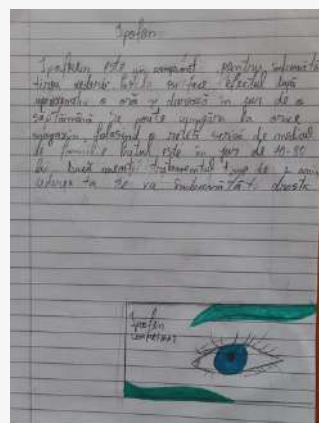 Ipofen
Ipofen este un comprimat pentru îmbunătă
țirea vederii își face efectul după
aproximativ o oră și durează în jur de o
săptămână se poate cumpăra la orice
magazin folosind o rețetă scrisă de medicul
de familie prețul este în jur de
lei Dacă tratamentul timp de 2 ani
vederea ta se va îmbunătăți drastic
Ipofen
COMPRIMAT